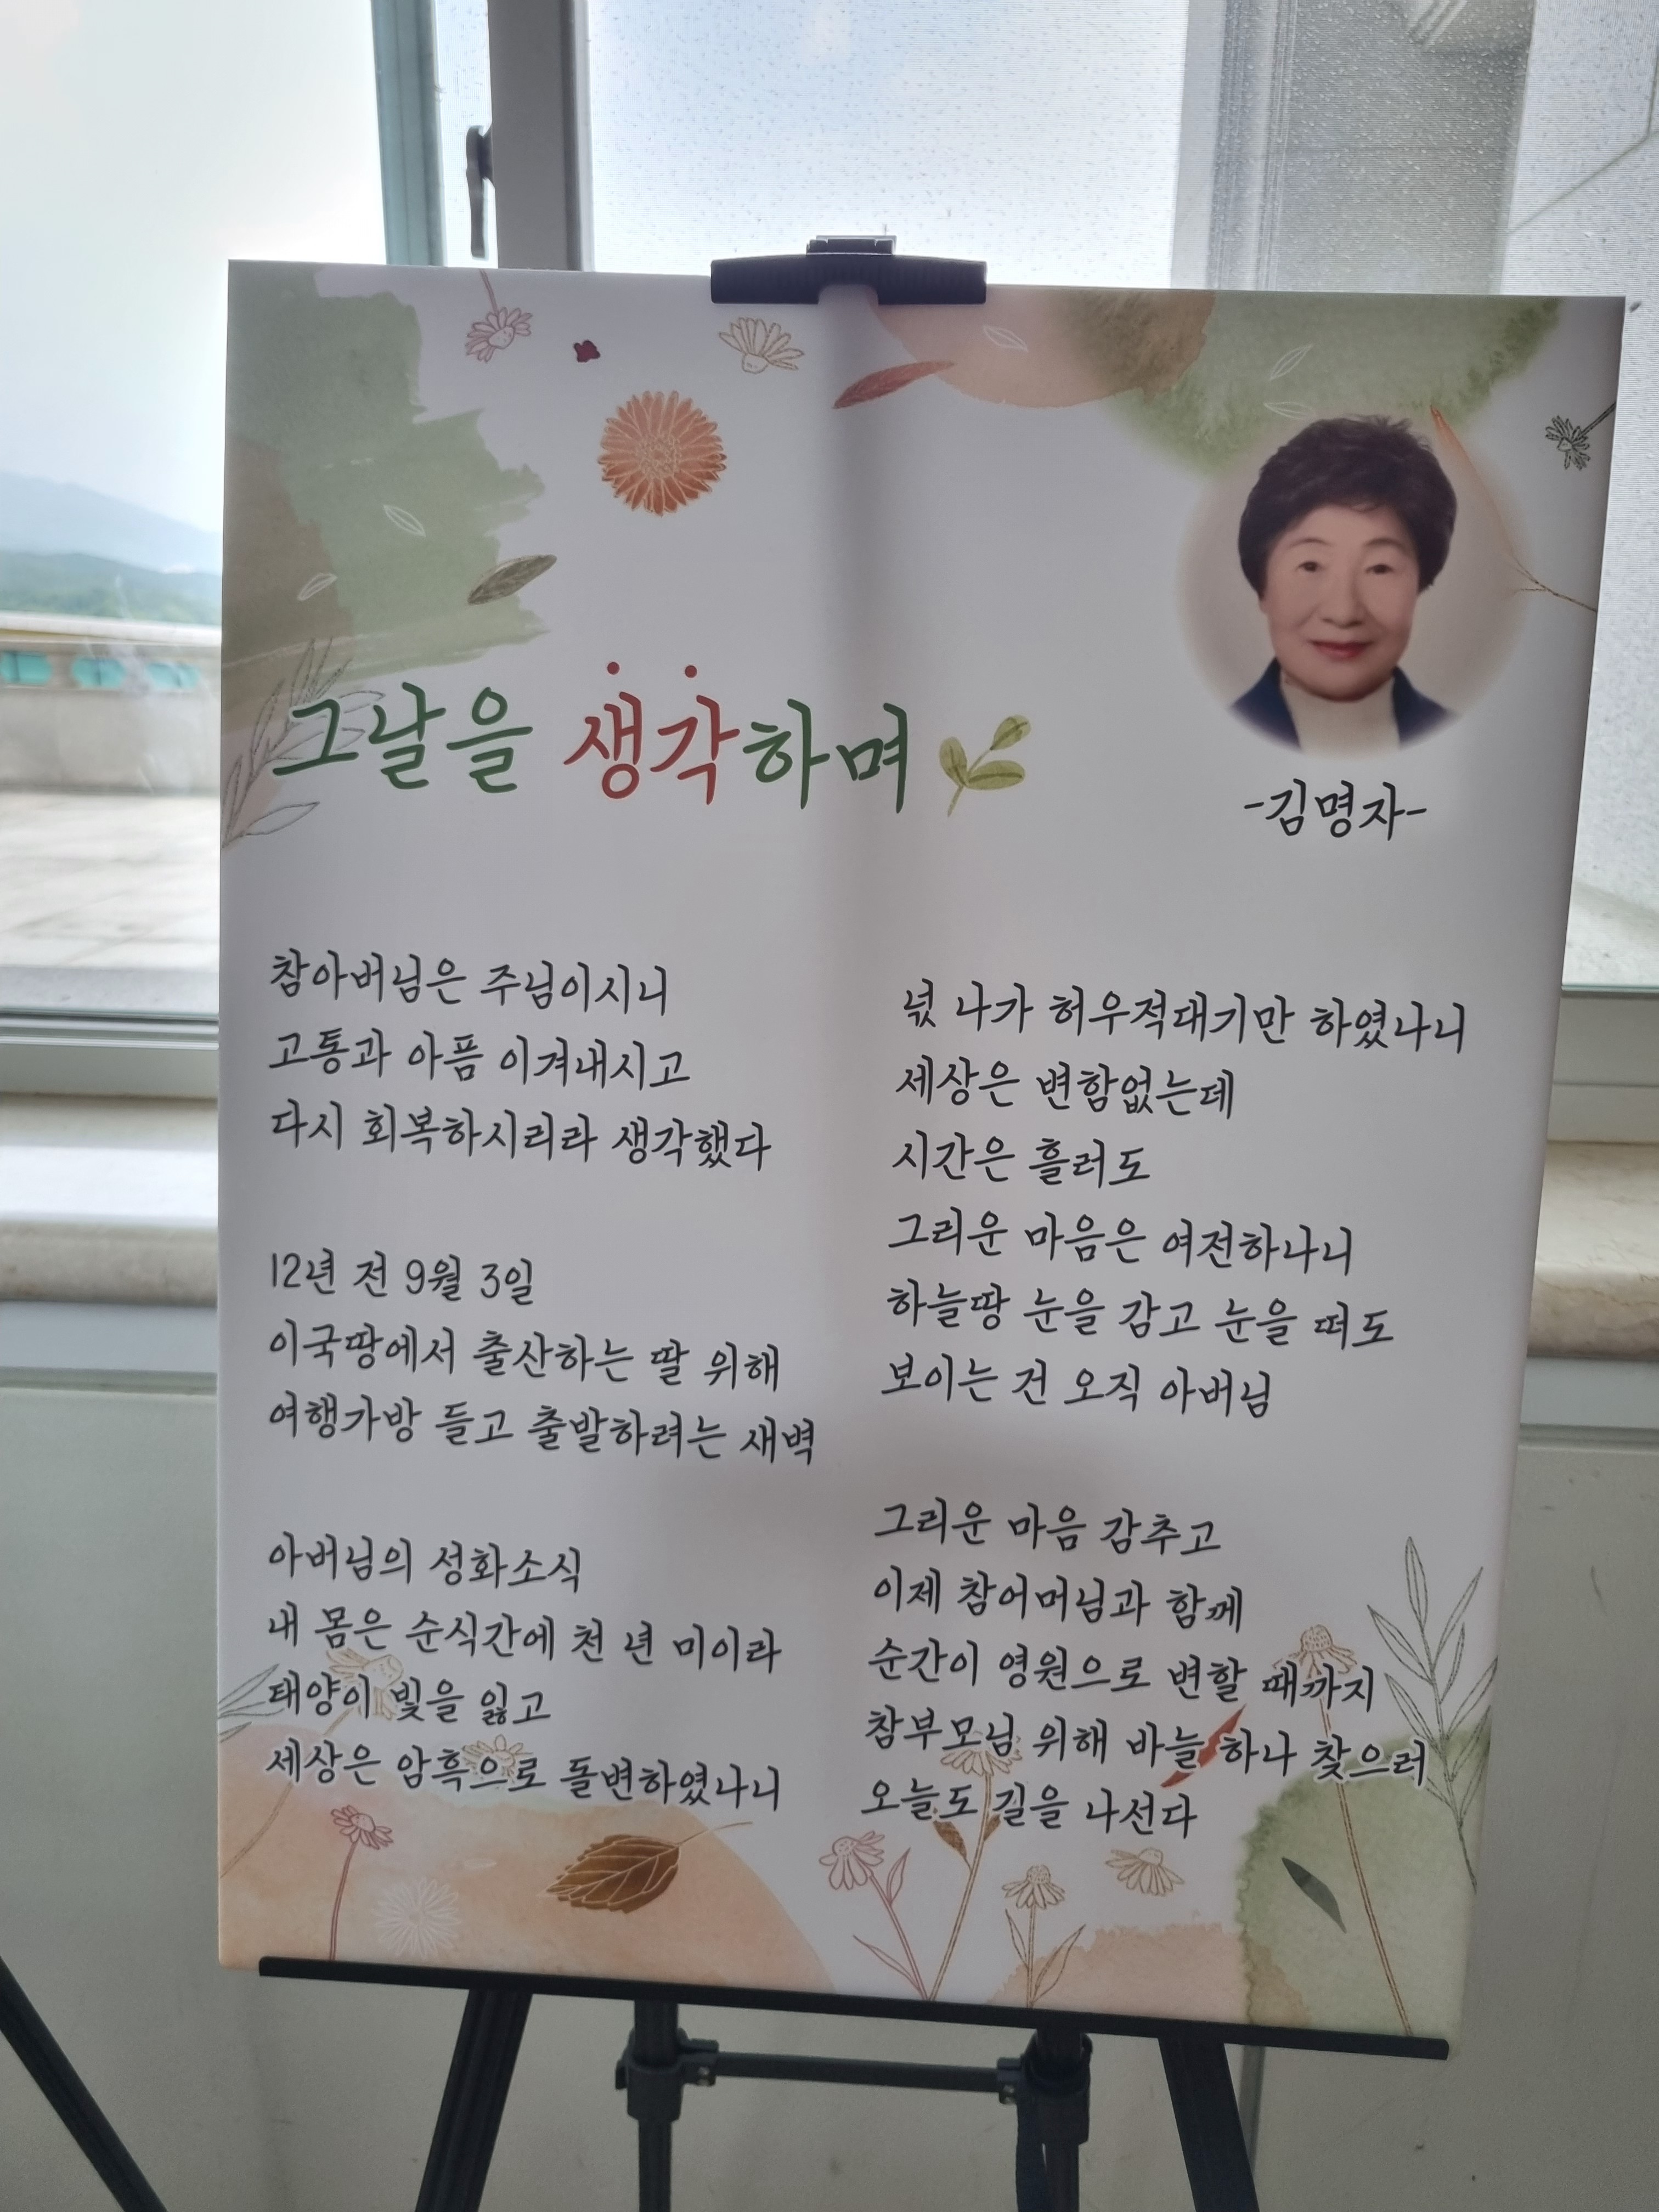 그날을 생각하며
-김명자-
참아버님은 주님이시니
고통과 아픔 이겨내시고
다시 회복하시리라 생각했다
12년 전 9월 3일
이국땅에서 출산하는 딸 위해
여행가방 들고 출발하려는 새벽
아버님의 성화소식
내 몸은 순식간에 천 년 미이라
태양이 빛을 잃고
세상은 암흑으로 돌변하였나니
넋 나가 허우적대기만 하였나니
세상은 변함없는데
시간은 흘러도
그리운 마음은 여전하나니
하늘땅 눈을 감고 눈을 떠도
보이는 건 오직 아버님
그리운 마음 감추고
이제 참어머님과 함께
순간이 영원으로 변할 때까지
참부모님 위해 바늘 하나 찾으러
오늘도 길을 나선다